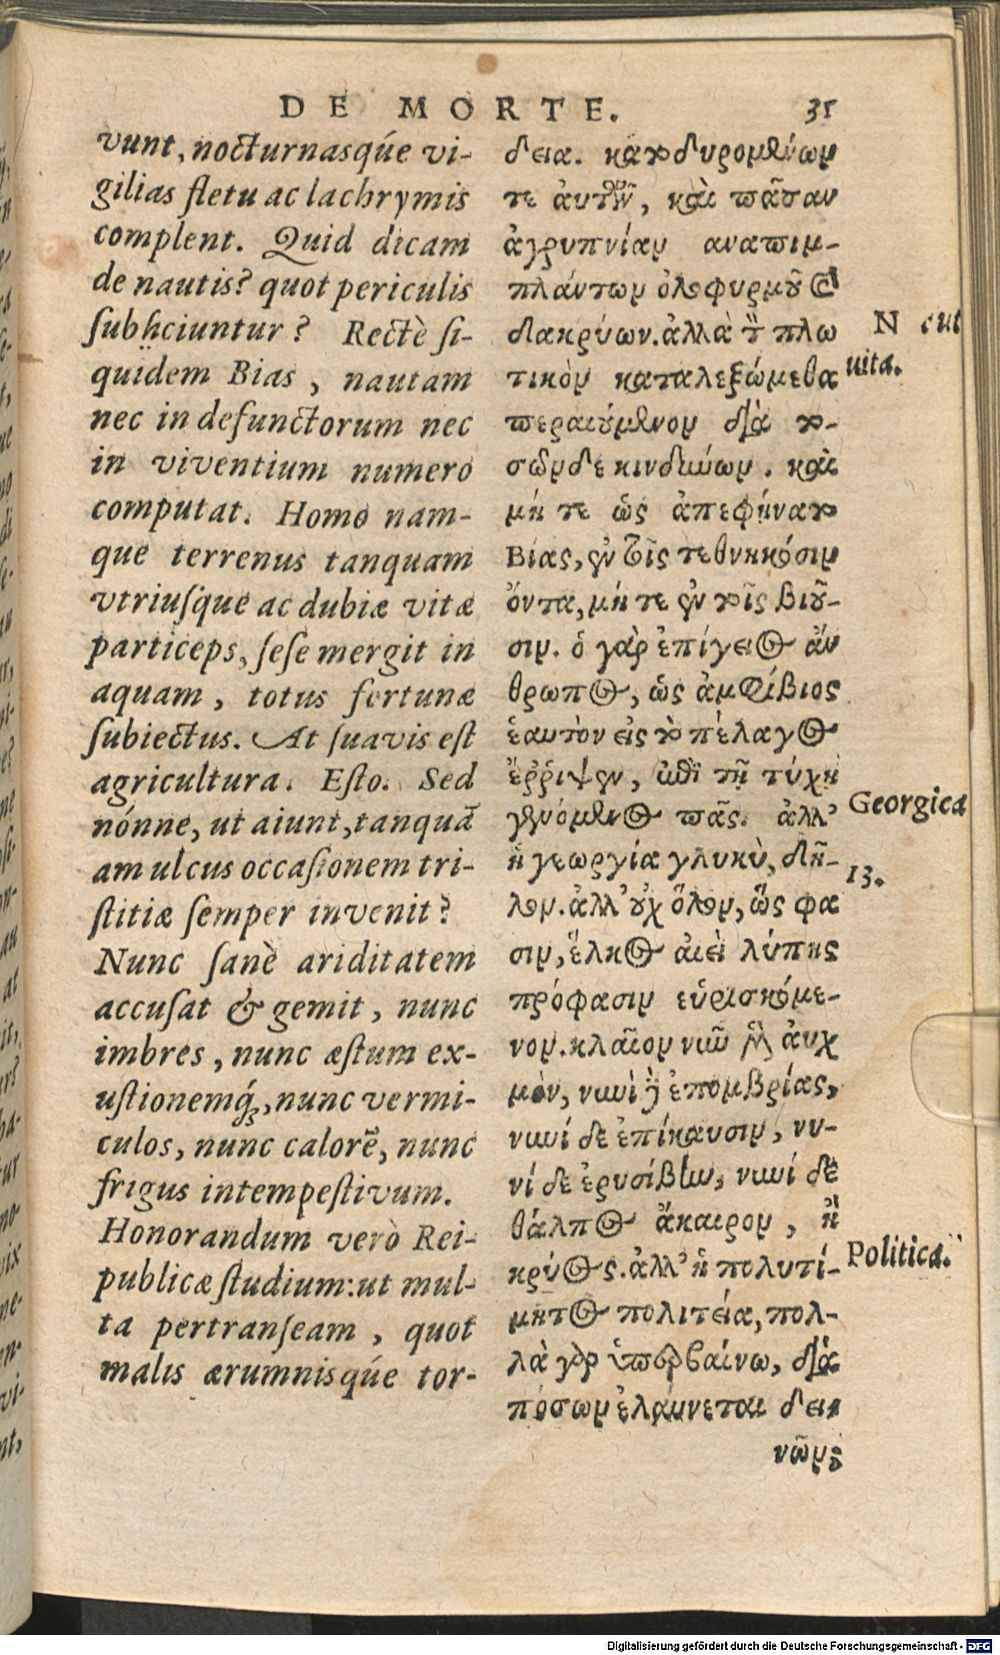 DE MORTE. 35
vunt, nocturnasq́ue vi-
gilias fletu ac lachrymis
complent. Quid dicam
de nautis? quot periculis
ſubijciuntur? Rectè ſi-
quidem Bias, nautam
nec in defunctorum nec
in viventium numero
computat. Homo nam-
que terrenus tanquam
vtriuſque ac dubiæ vitæ
particeps, ſeſe mergit in
aquam, totus fortunæ
ſubiectus. At ſuavis eſt
agricultura. Eſto. Sed
nónne, ut aiunt, tanquã
am ulcus occaſionem tri-
ſtitiæ ſemper invenit?
Nunc ſanè ariditatem
accuſat & gemit, nunc
imbres, nunc æſtum ex-
uſtionemq́;, nunc vermi-
culos, nunc calorẽ, nunc
frigus intempeſtivum.
Honorandum verò Rei-
publicæ ſtudium: ut mul-
ta pertranſeam, quot
malis ærumnisq́ue tor-
δεια. κατοδυρομένων
τε ἀυτῶν, καὶ πᾶσαν
ἀγρυπνίαν αναπιμ-
πλάντων ὀλοφυρμοῦ καὶ
δακρύων. ἀλλὰ τὸν πλω
τικὸν καταλεξώμεθα
περαιύμενον διὰ το-
σῶνδε κινδύνων. καὶ
μή τε ὡς ἀπεφήνατο
Βίας, ἐν τοῖς τεθνηκόσιν
ὄντα, μή τε ἐν τοῖς βιοῦ-
σιν. ὁ γὰρ ἐπίγειος ἄν
θρωπος, ὡς ἀμφίβιος
ἑαυτὸν εἰς τὸ πέλαγος
ἔῤῥιψεν, ἐπὶ τῇ τύχῃ
γενόμενος πᾶς. ἀλλ'
ἡ γεωργία γλυκὺ, δῆ-
λον. ἀλλ' οὐχ ὅλον, ὥς φα
σιν, ἕλκος αἰεὶ λύπης
πρόφασιν εὑρισκόμε-
νον. κλαῖον νιῶ μὲν ἀυχ
μὸν, νυνὶ δὲ ἐπομβρίας,
νυνί δε ἐπίκαυσιν, νυ-
νί δε ἐρυσίβην, νυνί δὲ
θάλπος ἄκαιρον, ἢ
κρύος. ἀλλ' ἡ πολυτί-
μητος πολιτεία, πολ-
λὰ γὰρ ὑπερβαίνω, διὰ
πόσων ἐλαύνεται δει
νῶν;
N aut
uita.
Georgica
13.
Politica.
Digitalisierung gefördert durch die Deutsche Forschungsgemeinschaft - DFG